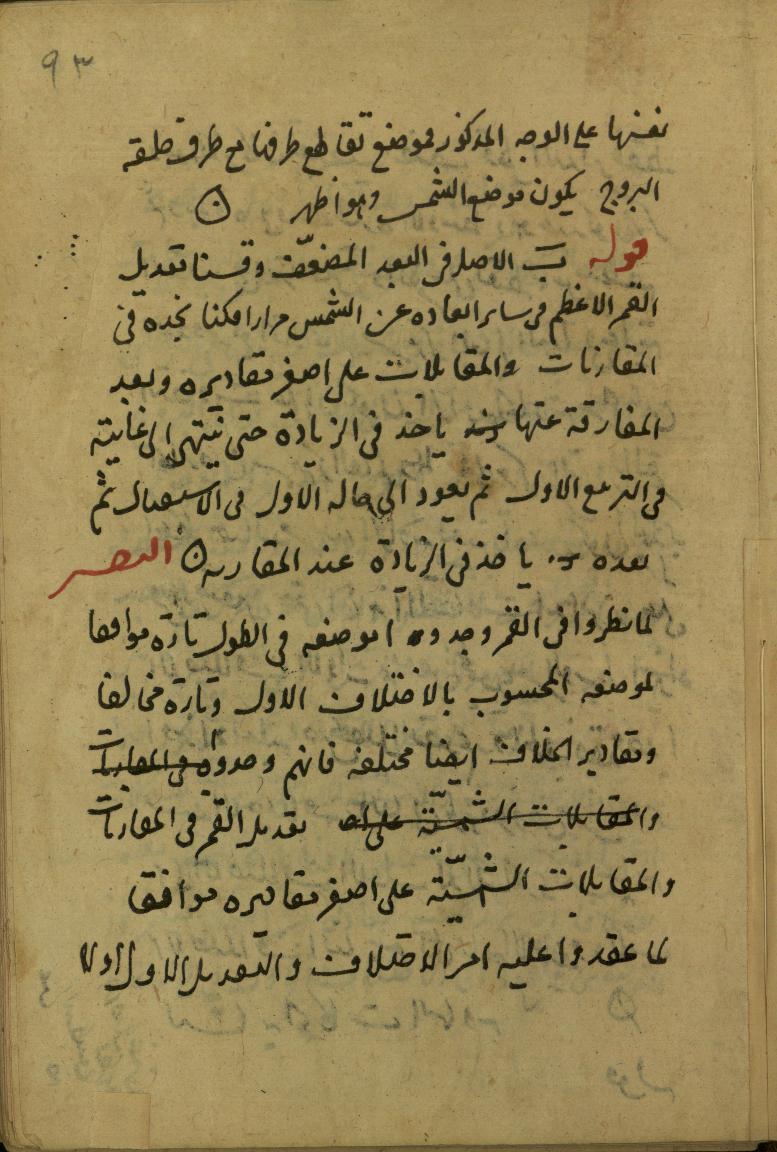 ٩٣
نفسها على الوجه المذكور فموضع تقاطع طرفها مع طرف حلقه
البروج يكون موضع الشمس وهو اظهر
قوله ب الاصل في البعد المضعّف وقسنا تعديل
القمر الاعظم في ساير ابعاده عن الشمس مرارا مكنا نجده في
المقارنات والمقابلات على اصغر مقاديره وبعد
المفارقة عنها ياخذ في الزيادة حتى ينتهي الى غايته
في التربيع الاول ثم يعود الى حاله الاول في الاستقبال ثم
بعده ياخذ في الزيادة عند المقارنه
لما نظروا في القمر وجدوه موضعه في الطول تارة موافقا
لموضعه المحسوب بالاختلاف الاول وتارة مخالفا
ومقادير الخلاف ايضا مختلفه فانهم وجدوا في المقابلات
والمقابلات الشمسيّة على اصـ تعديل القمر في المقارنات
والمقابلات الشمسيّة على اصغر مقاديره موافقا
لما عقدوا عليه امر الاختلاف والتعديل الاول اولا